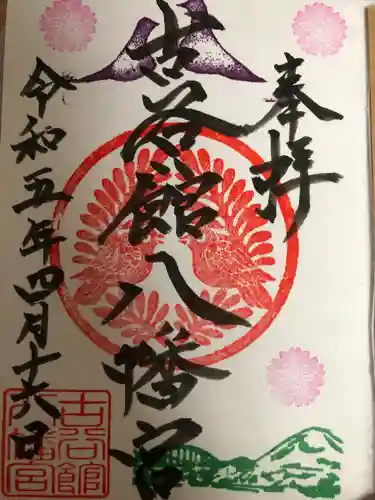 奉拝
古谷館八幡宮
令和五年四月十六日
古谷館八幡宮